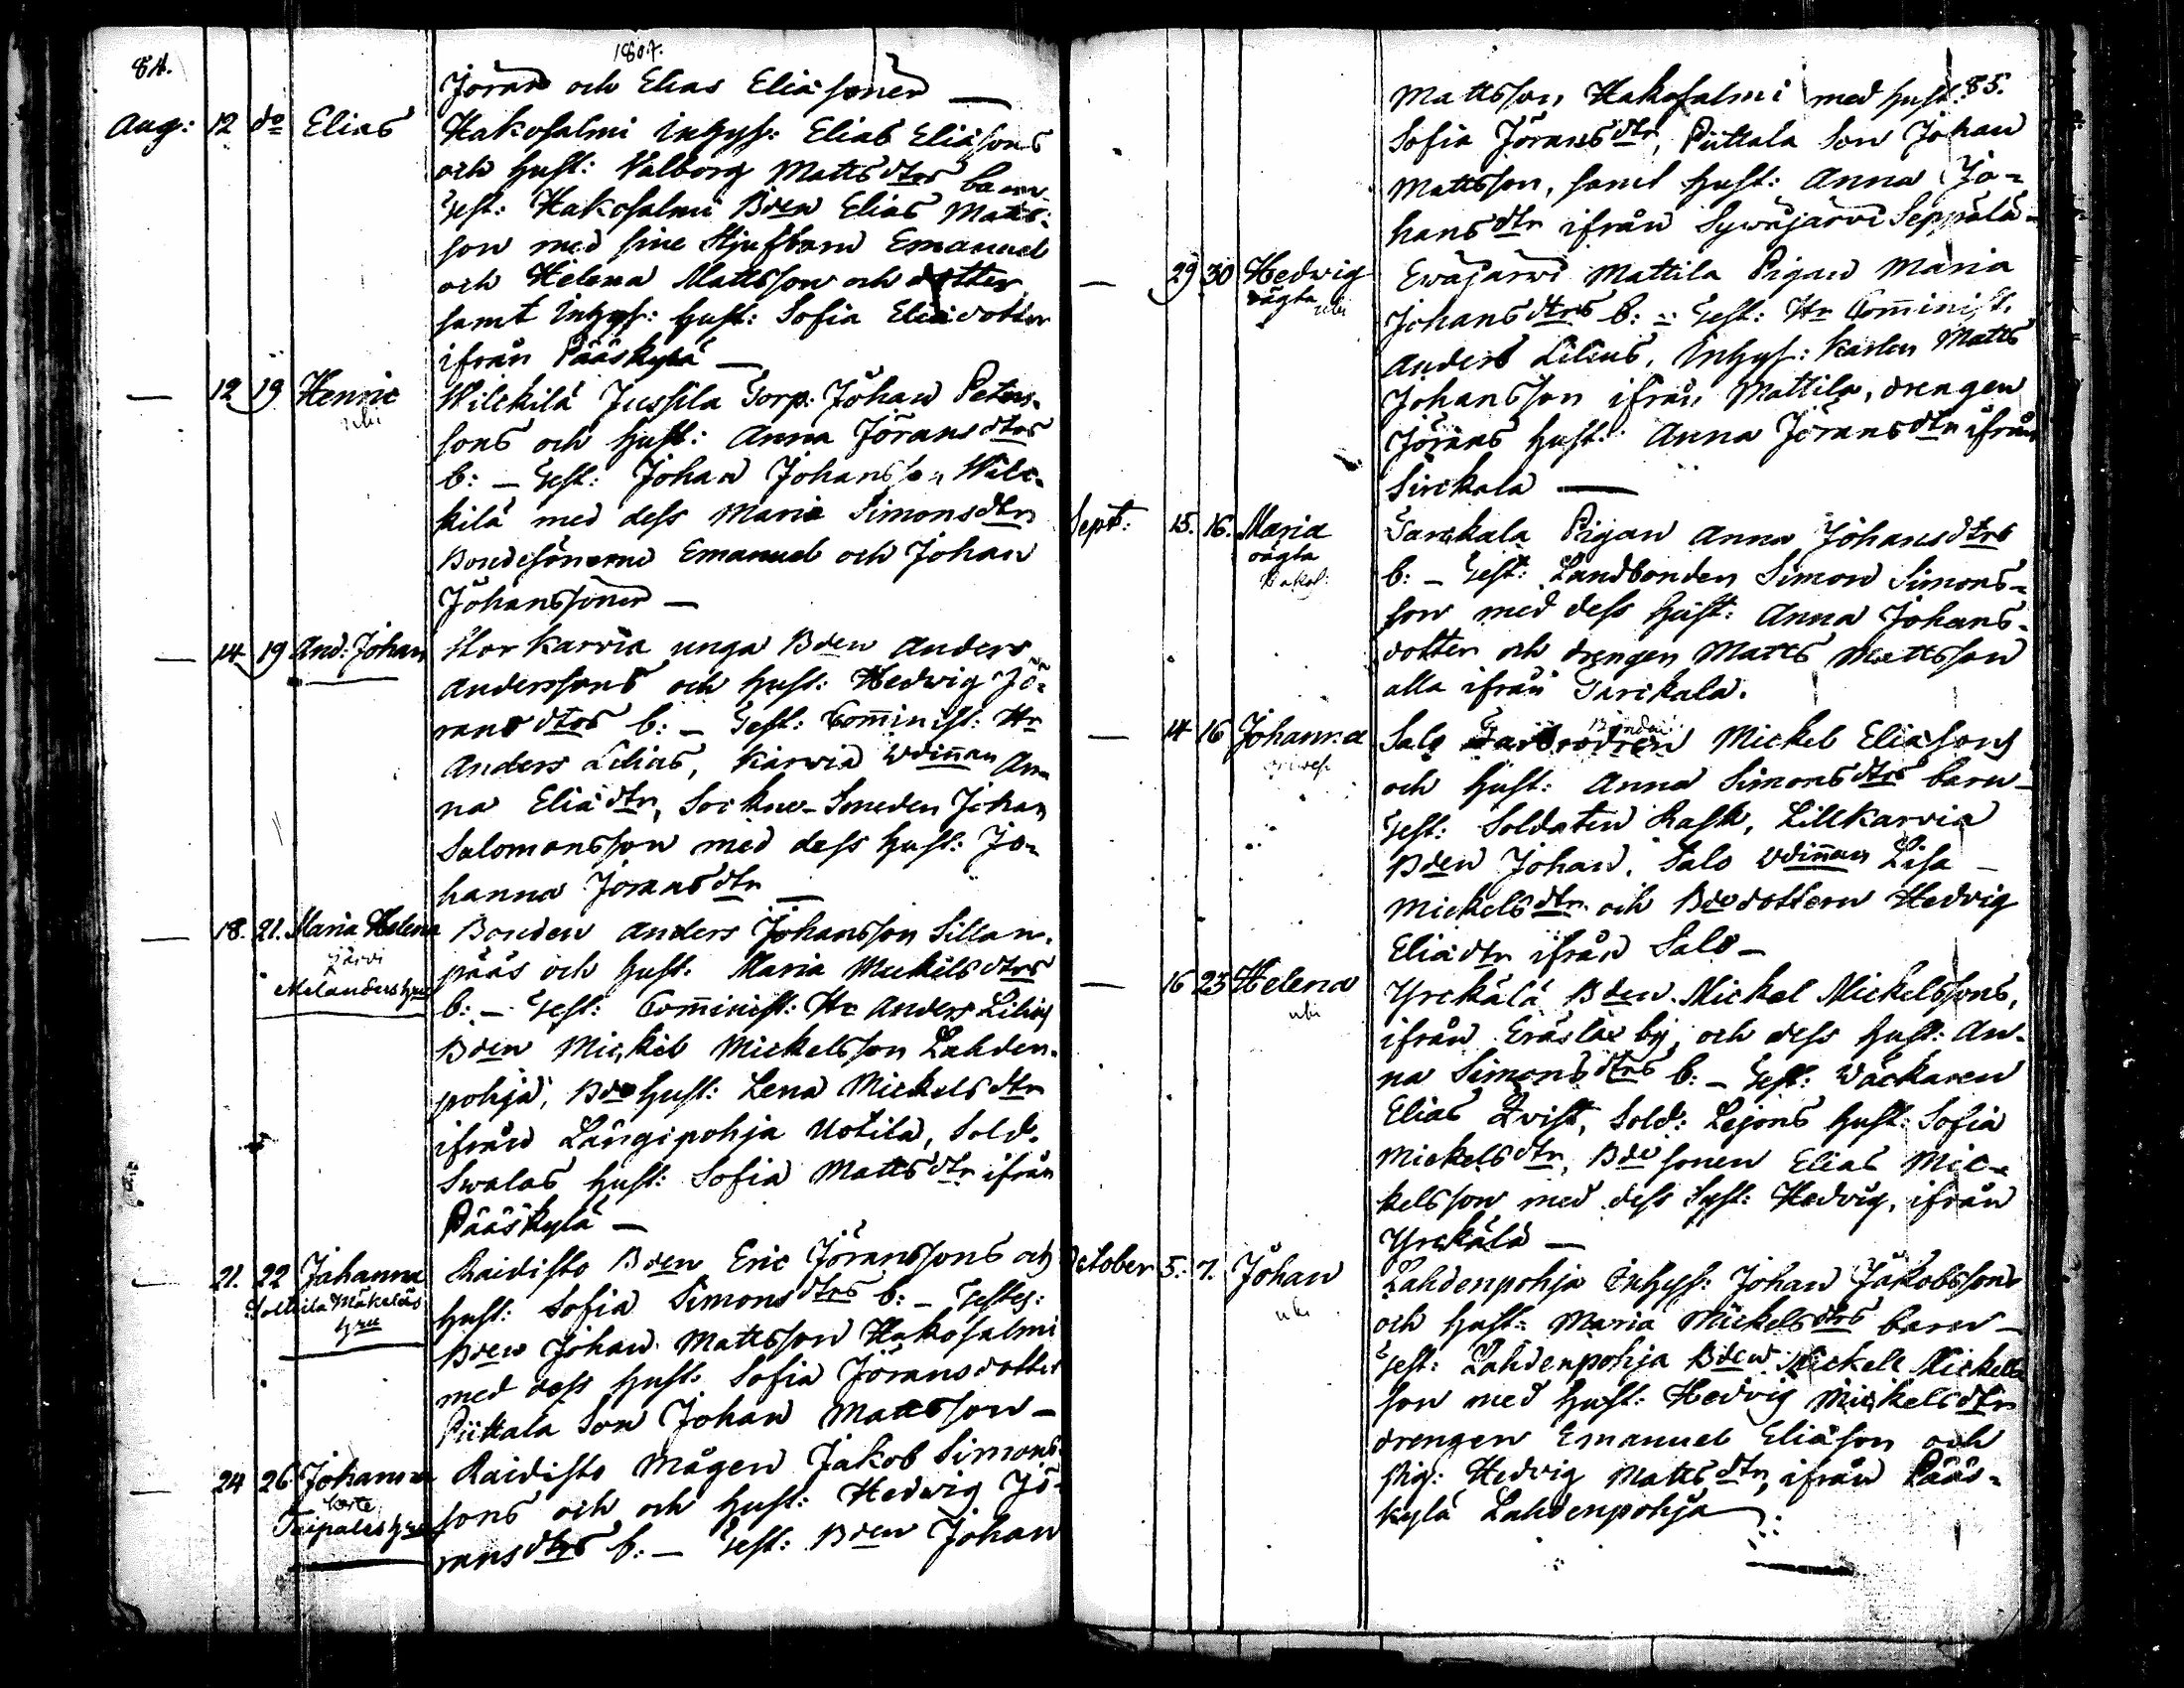 84.
1807.
Jöran och Elias Eliäsoner —
Aug: 12 do Elias Hakosalmi Inhys: Elias Eliäsons
och hust: Valborg Matts dtrs barn
Test: Hakosalmi Bden Elias Matts-
son med sine Stjufbarn Emanuel
och Helena Mattsson och dotter
samt Inhys: hust: Sofia Eliædotter
ifrån Pääskylä —
— 12 19 Henric Wilckilä Jussila Torp: Johan Peters-
sons och hust: Anna Jörans dtrs
b: — Test: Johan Johansson Wilc-
kilä med dess Maria Simonsdtr
Bondesönerne Emanuel och Johan
Johanssöner —
— 14 19 And: Johan Stor Karvia unga Bden Anders
Anderssons och hust: Hedwig Jö-
rans dtrs b: — Test: Comminist: Hr
Anders Lilius, Karvia Wdinnan An-
na Eliädtr, Sockne-Smeden Johan
Salomonsson med dess hust: Jo-
hanna Jöransdtr —
— 18. 21. Maria Helena Bonden Anders Johansson Sillan-
Järvi
Melanders hru
pääs och hust. Maria Mickelsdtrs
b: — Test: Comminist: Hr Anders Lilius
Bden Mickel Mickelsson Lahden-
pohja, Bde hust: Lena Mickelsdtr
ifrån Längipohja Uotila, Sold.
Swalas hust: Sofia Mattsdtr ifrån
Pääskylä —
— 21. 22 Johanna Raidisto Bden Eric Jöranssons och
Mäkeläs
hru
hust: Sofia Simonsdtrs b: — Testes:
Bden Johan Mattsson Hakosalmi
med dess hust: Sofia Jöransdotter
Püttala Son Johan Mattsson —
— 24 26 Johanna Raidisto Mågen Jakob Simons-
hru
sons och och hust: Hedwig Jö-
ransdtrs b: — Test: Bden Johan
85.
Mattsson Hakosalmi med hust:
Sofia Jöransdtr, Püttala Son Johan
Mattsson, samt hust: Anna Jo-
hansdtr ifrån Sywäjärvi Seppälä —
— 29 30 Hedwig Ewäjärwi Mattila Pigan Maria
oägta
Johansdtrs b: — Test: Hr Comminist.
Anders Lilius, Inhys: Karlen Matts
Johansson ifrån Mattila, drengen
Jörans hust: Anna Jöransdtr ifrån
Sirckala —
Sept: 15. 16. Maria Tarckala Pigan Anna Johansdtrs
oägta
b: — Test: Landbonden Simon Simons-
son med dess hust: Anna Johans-
dotter och drengen Matts Mattsson
alla ifrån Tarckala.
— 14 16 Johanna Salo Bonden Mickel Eliäsons
och hust: Anna Simonsdtrs barn —
Test: Soldaten Rask, Lillkarvia
Bden Johan, Salo Wdinnan Lisa —
Mickelsdtr och Bdedottern Hedvig
Eliädtr ifrån Salo —
— 16 23 Helena Yrckälä Bden Mickel Mickelssons,
ifrån Eräslax by, och dess hust: An-
na Simonsdtrs b: — Test: Wäckaren
Elias Qvist, Sold: Lejons hust: Sofia
Mickelsdtr, Bde sonen Elias Mic-
kelsson med dess Syst: Hedvig, ifrån
Yrckälä —
October 5. 7. Johan Lahdenpohja Inhys: Johan Jakobssons
och hust: Maria Mickelsdtrs barn —
Test: Lahdenpohja Bden Mickell Mickells-
son med hust: Hedvig Mickelsdtr
drengen Emanuel Eliäson och
Pig: Hedvig Mattsdtr, ifrån Pääs-
kylä Lahdenpohja